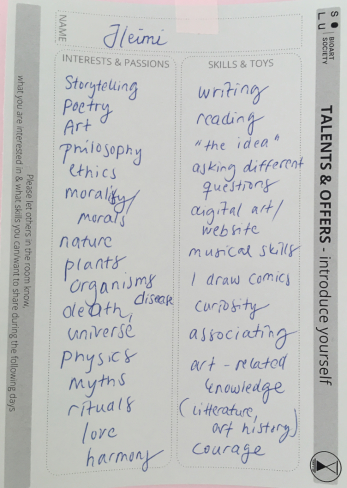 NAME
Heimi
INTERESTS & PASSIONS
Storytelling
Poetry
Art
philosophy
ethics
morality/
morals
nature
plants
organisms
death, disease
universe
physics
myths
rituals
love
harmony
SKILLS & TOYS
writing
reading
"the idea"
asking different
questions
digital art/
website
musical skills
I draw comics
curiosity
associating
art-related
knowledge
(litterature,
art history)
courage
SOLU
BIOART
SOCIETY
TALENTS & OFFERS - introduce yourself
Please let others in the room know,
what you are interested in & what skills you can/want to share during the following days